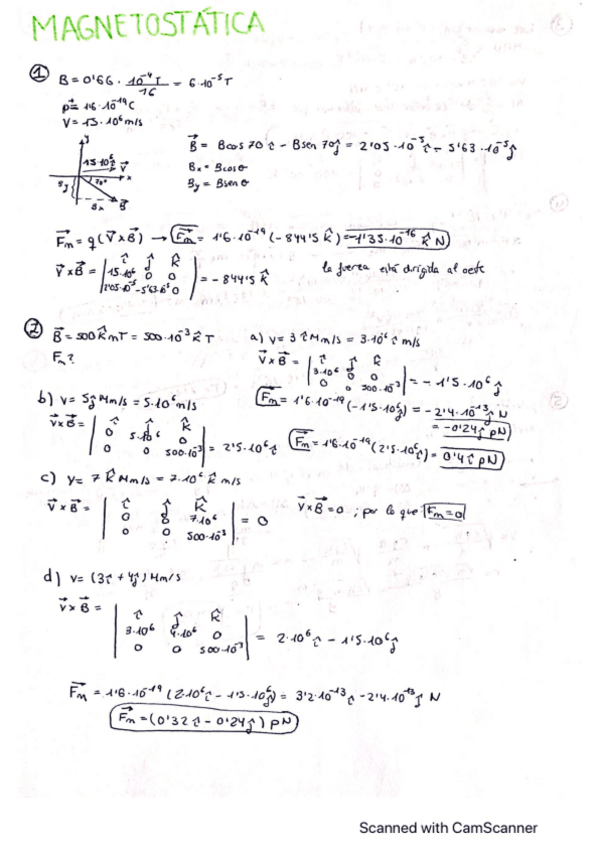 MAGNETOSTÁTICA
① B = 0'66 · 10⁻⁴T / 16 = 6·10⁻⁵T
p⃗ = 1'6·10⁻¹⁹C
V = 15·10⁶ m/s
y
15·10⁶ î V⃗
x
70°
By
Bx
B⃗
B⃗ = B cos 70 î − B sen 70 ĵ = 2'05·10⁻⁵ î − 5'63·10⁻⁵ ĵ
Bx = B cos θ
By = B sen θ
F⃗m = q (V⃗ x B⃗) → F⃗m = 1'6·10⁻¹⁹ (−844'5 k̂) = −1'35·10⁻¹⁶ k̂ N
V⃗ x B⃗ = | î ĵ k̂ |
| 15·10⁶ 0 0 |
| 2'05·10⁻⁵ −5'63·10⁻⁵ 0 | = −844'5 k̂
la fuerza está dirigida al oeste
② B⃗ = 500 k̂ mT = 500·10⁻³ k̂ T
Fm?
a) V = 3 î Mm/s = 3·10⁶ î m/s
V⃗ x B⃗ = | î ĵ k̂ |
| 3·10⁶ 0 0 |
| 0 0 500·10⁻³ | = −1'5·10⁶ ĵ
F⃗m = 1'6·10⁻¹⁹ (−1'5·10⁶ ĵ) = −2'4·10⁻¹³ ĵ N
= −0'24 ĵ pN
b) V = 5 ĵ Mm/s = 5·10⁶ m/s
V⃗ x B⃗ = | î ĵ k̂ |
| 0 5·10⁶ 0 |
| 0 0 500·10⁻³ | = 2'5·10⁶ î
F⃗m = 1'6·10⁻¹⁹ (2'5·10⁶ î) = 0'4 î pN
c) V = 7 k̂ Mm/s = 7·10⁶ k̂ m/s
V⃗ x B⃗ = | î ĵ k̂ |
| 0 0 7·10⁶ |
| 0 0 500·10⁻³ | = 0
V⃗ x B⃗ = 0 ; por lo que Fm = 0
d) V = (3 î + 4 ĵ) Mm/s
V⃗ x B⃗ =
| î ĵ k̂ |
| 3·10⁶ 4·10⁶ 0 |
| 0 0 500·10⁻³ | = 2·10⁶ î − 1'5·10⁶ ĵ
F⃗m = 1'6·10⁻¹⁹ (2·10⁶ î − 1'5·10⁶ ĵ) = 3'2·10⁻¹³ î − 2'4·10⁻¹³ ĵ N
F⃗m = (0'32 î − 0'24 ĵ) pN
Scanned with CamScanner